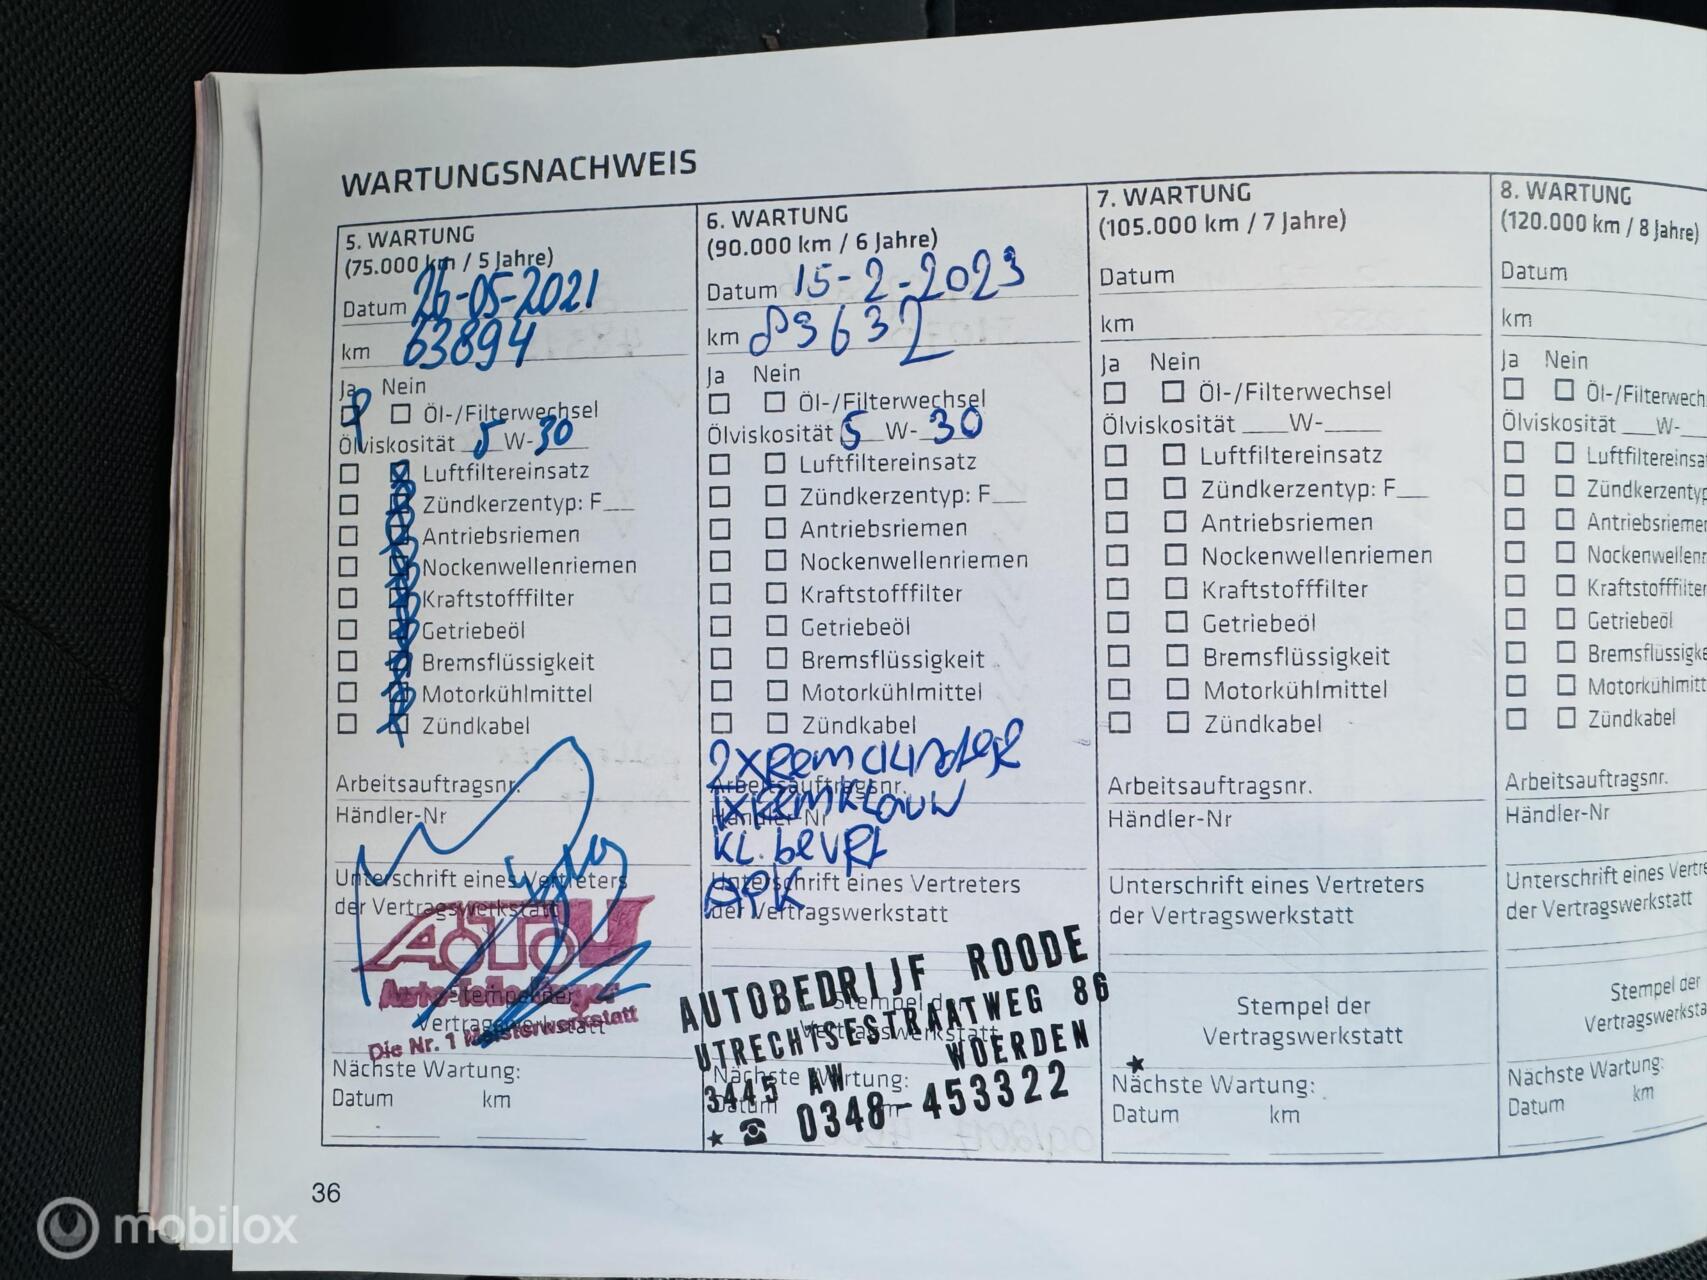 WARTUNGSNACHWEIS
5. WARTUNG
(75.000 km / 5 Jahre)
Datum 26-05-2021
km 63894
Ja Nein
Öl-/Filterwechsel
Ölviskosität 5 W-30
Luftfiltereinsatz
Zündkerzentyp: F___
Antriebsriemen
Nockenwellenriemen
Kraftstofffilter
Getriebeöl
Bremsflüssigkeit
Motorkühlmittel
Zündkabel
Arbeitsauftragsnr.
Händler-Nr
Unterschrift eines Vertreters
der Vertragswerkstatt
AUTO
Stempel der
Vertragswerkstatt
Die Nr. 1 Meisterwerkstatt
Nächste Wartung:
Datum km
6. WARTUNG
(90.000 km / 6 Jahre)
Datum 15-2-2023
km 83632
Ja Nein
Öl-/Filterwechsel
Ölviskosität 5 W-30
Luftfiltereinsatz
Zündkerzentyp: F___
Antriebsriemen
Nockenwellenriemen
Kraftstofffilter
Getriebeöl
Bremsflüssigkeit
Motorkühlmittel
Zündkabel
2x Remcilinder
Arbeitsauftragsnr.
1x Remklauw
Händler-Nr
KL. beurt
Unterschrift eines Vertreters
APK
der Vertragswerkstatt
AUTOBEDRIJF ROODE
Stempel der
UTRECHTSESTRAATWEG 86
Vertragswerkstatt
3445 AW WOERDEN
Nächste Wartung:
Datum km
★ ☎ 0348-453322 ★
7. WARTUNG
(105.000 km / 7 Jahre)
Datum
km
Ja Nein
Öl-/Filterwechsel
Ölviskosität ___W-____
Luftfiltereinsatz
Zündkerzentyp: F___
Antriebsriemen
Nockenwellenriemen
Kraftstofffilter
Getriebeöl
Bremsflüssigkeit
Motorkühlmittel
Zündkabel
Arbeitsauftragsnr.
Händler-Nr
Unterschrift eines Vertreters
der Vertragswerkstatt
Stempel der
Vertragswerkstatt
Nächste Wartung:
Datum km
8. WARTUNG
(120.000 km / 8 Jahre)
Datum
km
Ja Nein
Öl-/Filterwech
Ölviskosität ___W-__
Luftfiltereinsa
Zündkerzentyp
Antriebsriemer
Nockenwellenr
Kraftstofffilter
Getriebeöl
Bremsflüssigke
Motorkühlmitt
Zündkabel
Arbeitsauftragsnr.
Händler-Nr
Unterschrift eines Vertre
der Vertragswerkstatt
Stempel der
Vertragswerksta
Nächste Wartung:
Datum km
36
mobilox